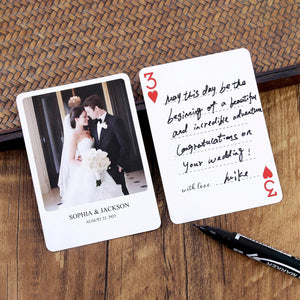 SOPHIA & JACKSON
AUGUST 22, 2025
3
May this day be the
beginning of a beautiful
and incredible adventure
Congratulations on
your wedding!
with love mike
3
MARKER